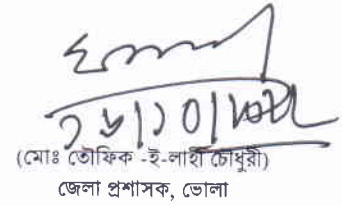 ১৬/১০/২০২২
(মোঃ তৌফিক -ই-লাহী চৌধুরী)
জেলা প্রশাসক, ভোলা